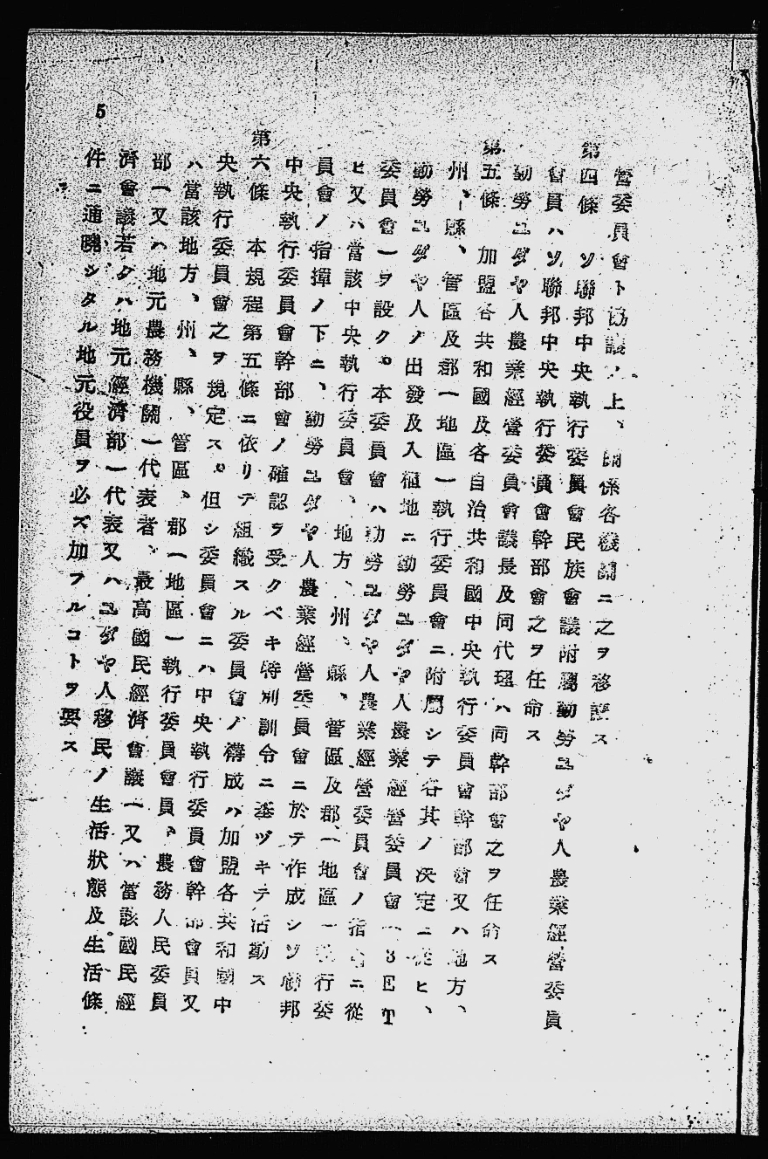 營委員會ト協議ノ上、關係各機關ニ之ヲ移譲ス
第四條 ソ聯邦中央執行委員會民族會議附屬勤勞ユダヤ人農業經營委員
會員ハソ聯邦中央執行委員會幹部會之ヲ任命ス
勤勞ユダヤ人農業經營委員會議長及同代理ハ同幹部會之ヲ任命ス
第五條 加盟各共和國及各自治共和國中央執行委員會幹部會又ハ地方、
州、縣、管區及郡一地區一執行委員會ニ附屬シテ各其ノ決定ニ從ヒ、
勤勞ユダヤ人ノ出發及入植地ニ勤勞ユダヤ人農業經營委員會一ЗЕТ
委員會一ヲ設ク。本委員會ハ勤勞ユダヤ人農業經營委員會ノ指令ニ從
ヒ又ハ當該中央執行委員會、地方、州、縣、管區及郡、一地區一執行委
員會ノ指揮ノ下ニ、勤勞ユダヤ人農業經營委員會ニ於テ作成シソ聯邦
中央執行委員會幹部會ノ確認ヲ受クベキ特別訓令ニ基ヅキテ活動ス
第六條 本規程第五條ニ依リテ組織スル委員會ノ構成ハ加盟各共和國中
央執行委員會之ヲ規定ス。但シ委員會ニハ中央執行委員會幹部會員又
ハ當該地方、州、縣、管區、郡一地區一執行委員會員、農務人民委員
部一又ハ地元農務機關一代表者、最高國民經濟會議一又ハ當該國民經
濟會議若クハ地元經濟部一代表又ハユダヤ人移民ノ生活狀態及生活條
件ニ通曉シタル地元役員ヲ必ズ加フルコトヲ要ス
5